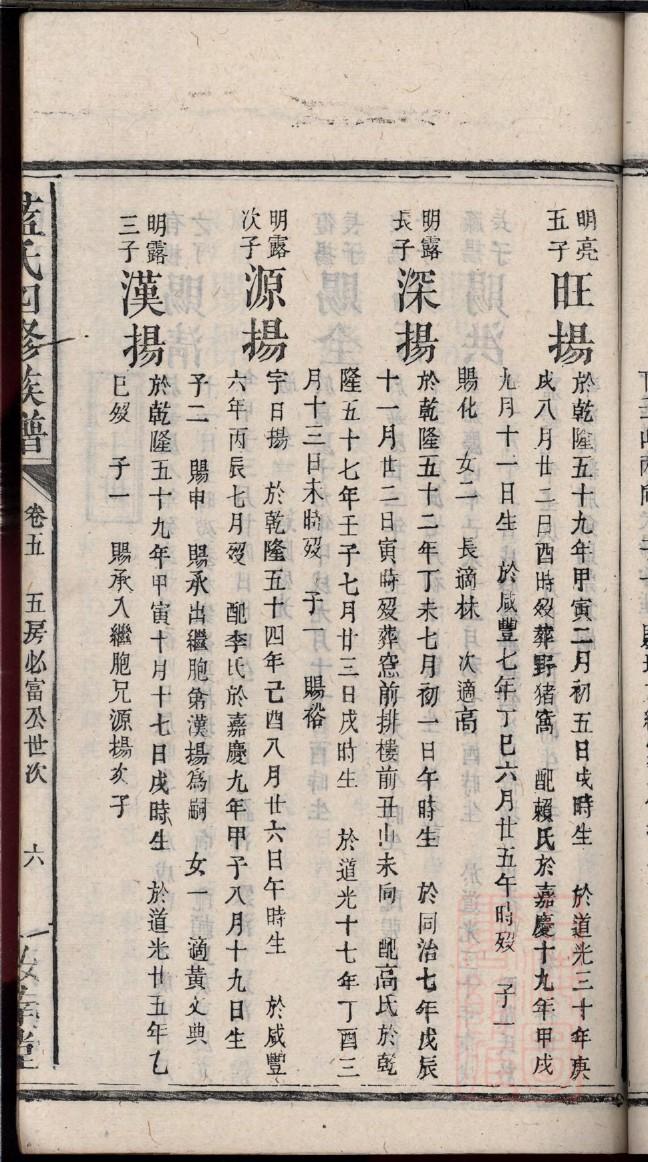 明亮
五子
旺揚
於乾隆五十九年甲寅二月初五日戌時生　於道光三十年庚
戌八月廿二日酉時歿葬野猪窩　配賴氏於嘉慶十九年甲戌
九月十一日生　於咸豐七年丁巳六月廿五午時歿　子一
賜化　女二　長適林　次適高
明露
長子
深揚
於乾隆五十二年丁未七月初一日午時生　於同治七年戊辰
十一月廿二日寅時歿葬窓前排樓前丑山未向　配高氏於乾
隆五十七年壬子七月廿三日戌時生　於道光十七年丁酉三
月十三日未時歿　子一　賜裕
明露
次子
源揚
字日揚　於乾隆五十四年己酉八月廿六日午時生　於咸豐
六年丙辰七月歿　配李氏於嘉慶九年甲子八月十九日生
子二　賜申　賜承出繼胞弟漢揚爲嗣　女一　適黃文典
明露
三子
漢揚
於乾隆五十九年甲寅十月十七日戌時生　於道光廿五年乙
巳歿　子一　賜承入繼胞兄源揚次子
藍氏四修族譜　卷五　五房必富公世次　六